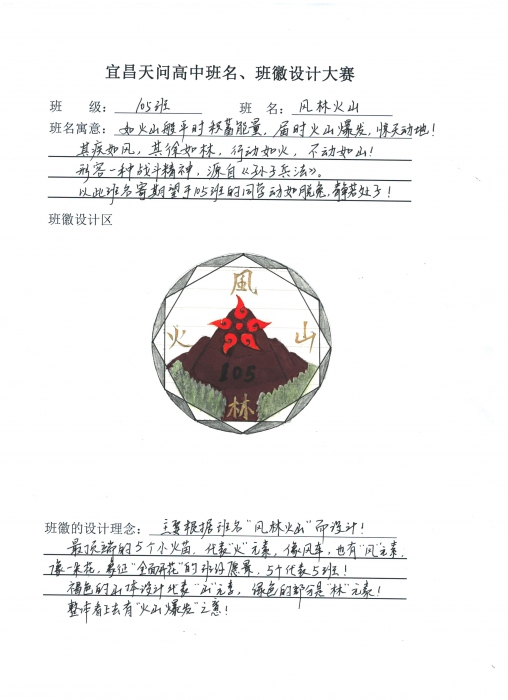 宜昌天问高中班名、班徽设计大赛
班 级: 105班 班 名: 风林火山
班名寓意: 如火山般平时积蓄能量,届时火山爆发,惊天动地!
其疾如风,其徐如林,行动如火,不动如山!
形容一种战斗精神,源自《孙子兵法》。
以此班名寄期望于105班的同学动如脱兔,静若处子!
班徽设计区
風
火 山
105
林
班徽的设计理念: 主要根据班名"风林火山"而设计!
最顶端的5个小火苗,代表"火"元素,像风车,也有"风"元素,
像一朵花,象征"全面开花"的美好愿景,5个代表5班!
褐色的山体设计代表"山"元素,绿色的部分是"林"元素!
整体看上去有"火山爆发"之意!